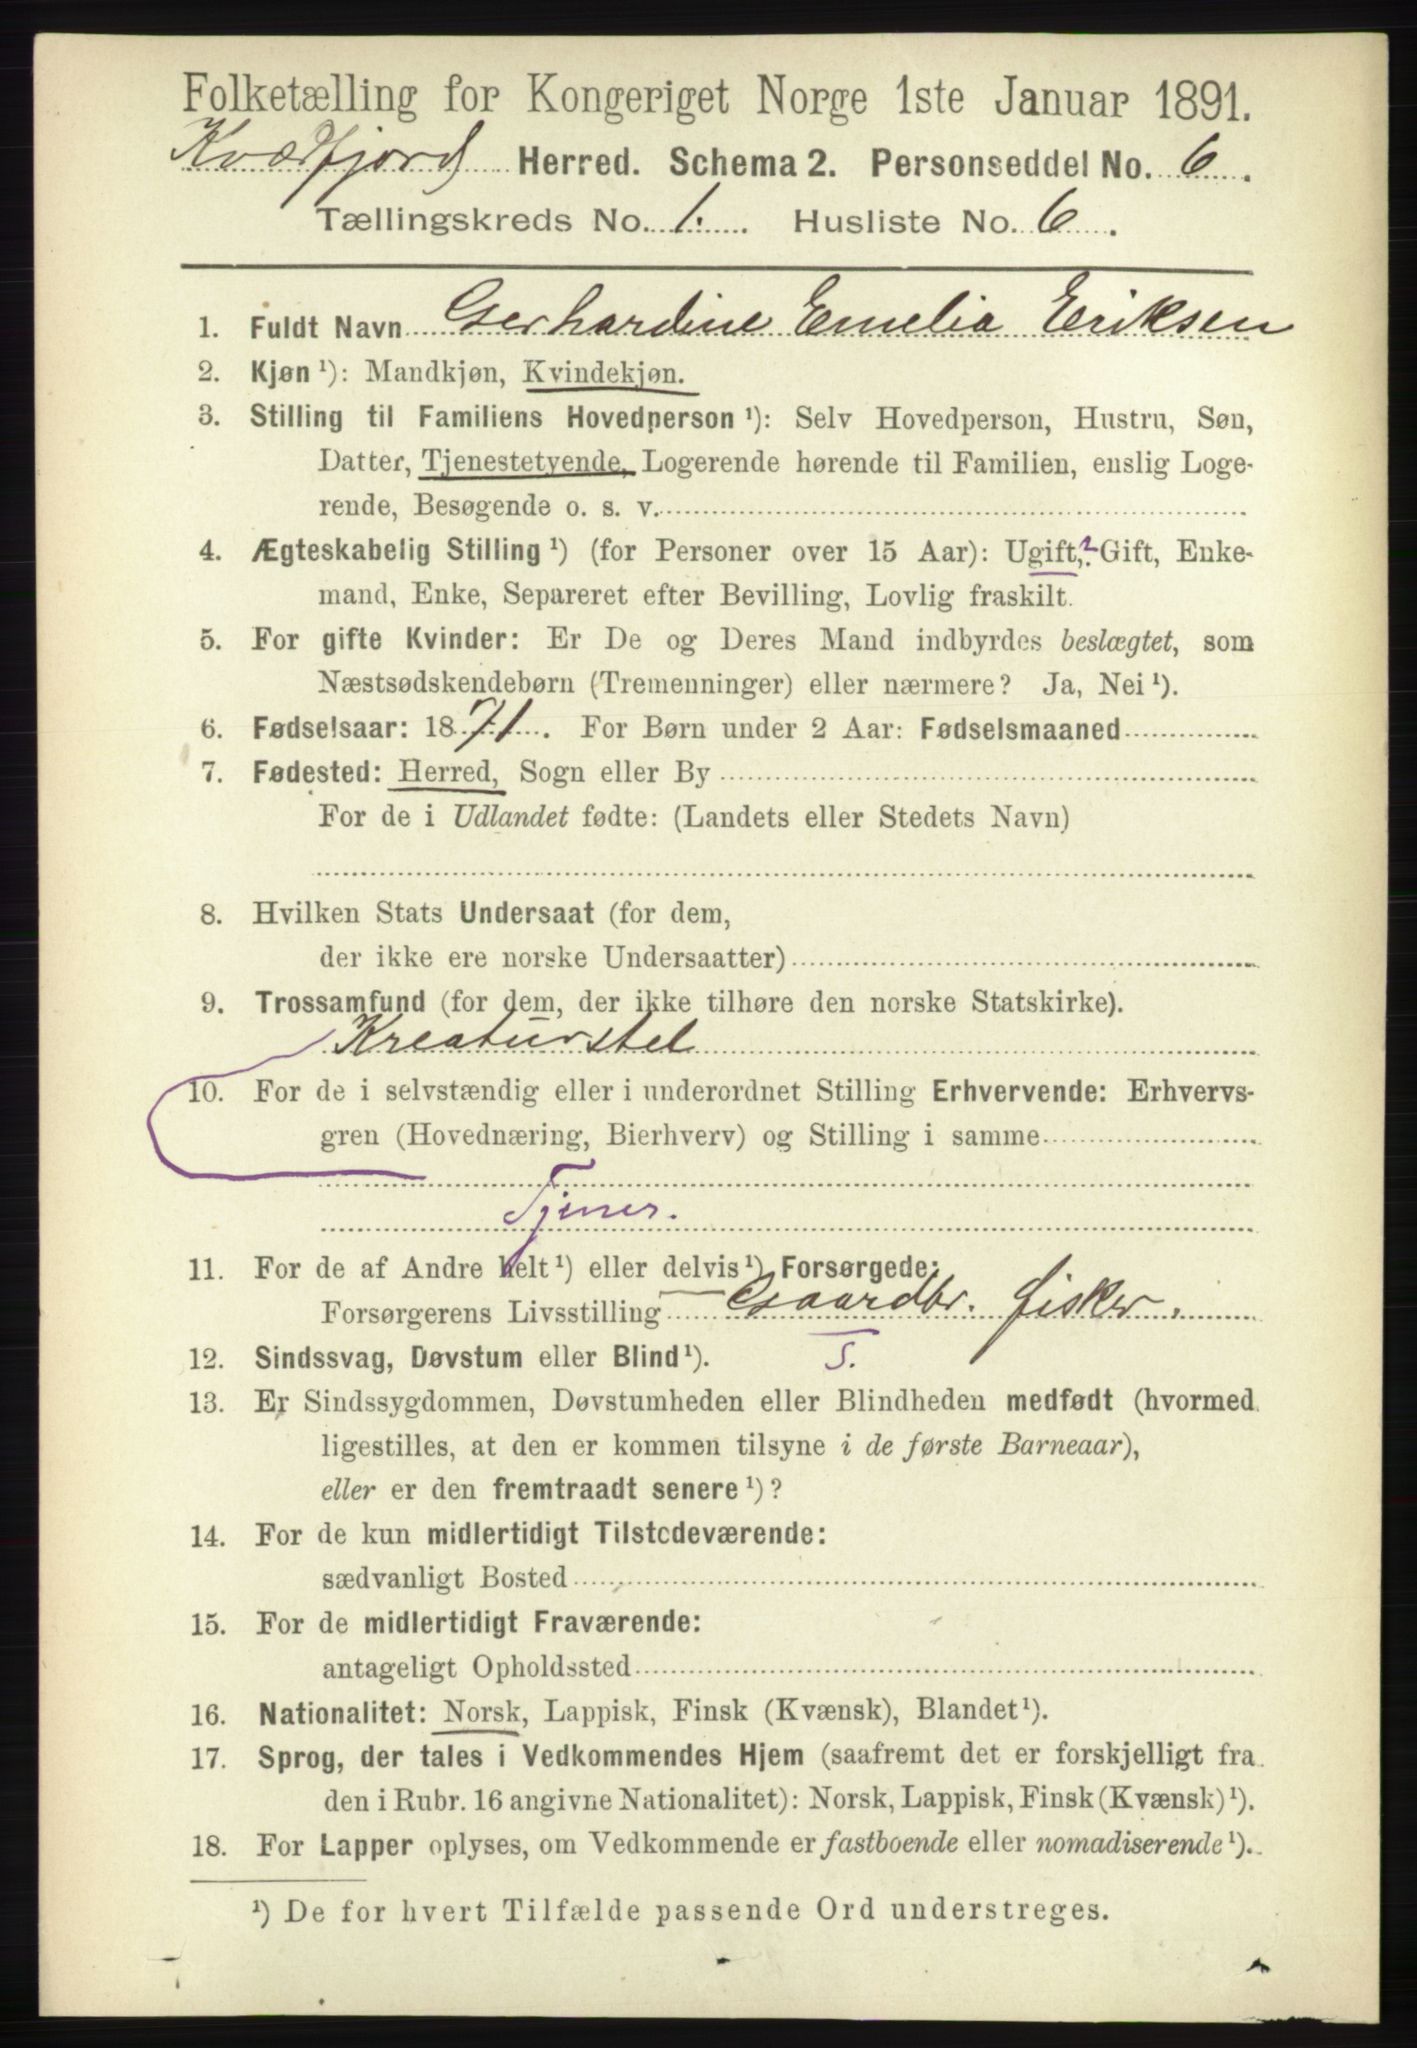 Folketælling for Kongeriget Norge 1ste Januar 1891.
Kvædfjord Herred. Schema 2. Personseddel No. 6.
Tællingskreds No. 1. Husliste No. 6.
1. Fuldt Navn Gerhardine Emelia Eriksen
2. Kjøn ¹): Mandkjøn, Kvindekjøn.
3. Stilling til Familiens Hovedperson ¹): Selv Hovedperson, Hustru, Søn,
Datter, Tjenestetyende, Logerende hørende til Familien, enslig Loge-
rende, Besøgende o. s. v.
4. Ægteskabelig Stilling ¹) (for Personer over 15 Aar): Ugift,? Gift, Enke-
mand, Enke, Separeret efter Bevilling, Lovlig fraskilt.
5. For gifte Kvinder: Er De og Deres Mand indbyrdes beslægtet, som
Næstsødskendebørn (Tremenninger) eller nærmere? Ja, Nei ¹).
6. Fødselsaar: 1871. For Børn under 2 Aar: Fødselsmaaned
7. Fødested: Herred, Sogn eller By
For de i Udlandet fødte: (Landets eller Stedets Navn)
8. Hvilken Stats Undersaat (for dem,
der ikke ere norske Undersaatter)
9. Trossamfund (for dem, der ikke tilhøre den norske Statskirke).
Kreaturstel
10. For de i selvstændig eller i underordnet Stilling Erhvervende: Erhvervs-
gren (Hovednæring, Bierhverv) og Stilling i samme
Tjener.
11. For de af Andre helt ¹) eller delvis ¹) Forsørgede:
Forsørgerens Livsstilling Gaardbr. fisker.
12. Sindssvag, Døvstum eller Blind ¹). S.
13. Er Sindssygdommen, Døvstumheden eller Blindheden medfødt (hvormed
ligestilles, at den er kommen tilsyne i de første Barneaar),
eller er den fremtraadt senere ¹)?
14. For de kun midlertidigt Tilstedeværende:
sædvanligt Bosted
15. For de midlertidigt Fraværende:
antageligt Opholdssted
16. Nationalitet: Norsk, Lappisk, Finsk (Kvænsk), Blandet ¹).
17. Sprog, der tales i Vedkommendes Hjem (saafremt det er forskjelligt fra
den i Rubr. 16 angivne Nationalitet): Norsk, Lappisk, Finsk (Kvænsk) ¹).
18. For Lapper oplyses, om Vedkommende er fastboende eller nomadiserende ¹).
¹) De for hvert Tilfælde passende Ord understreges.